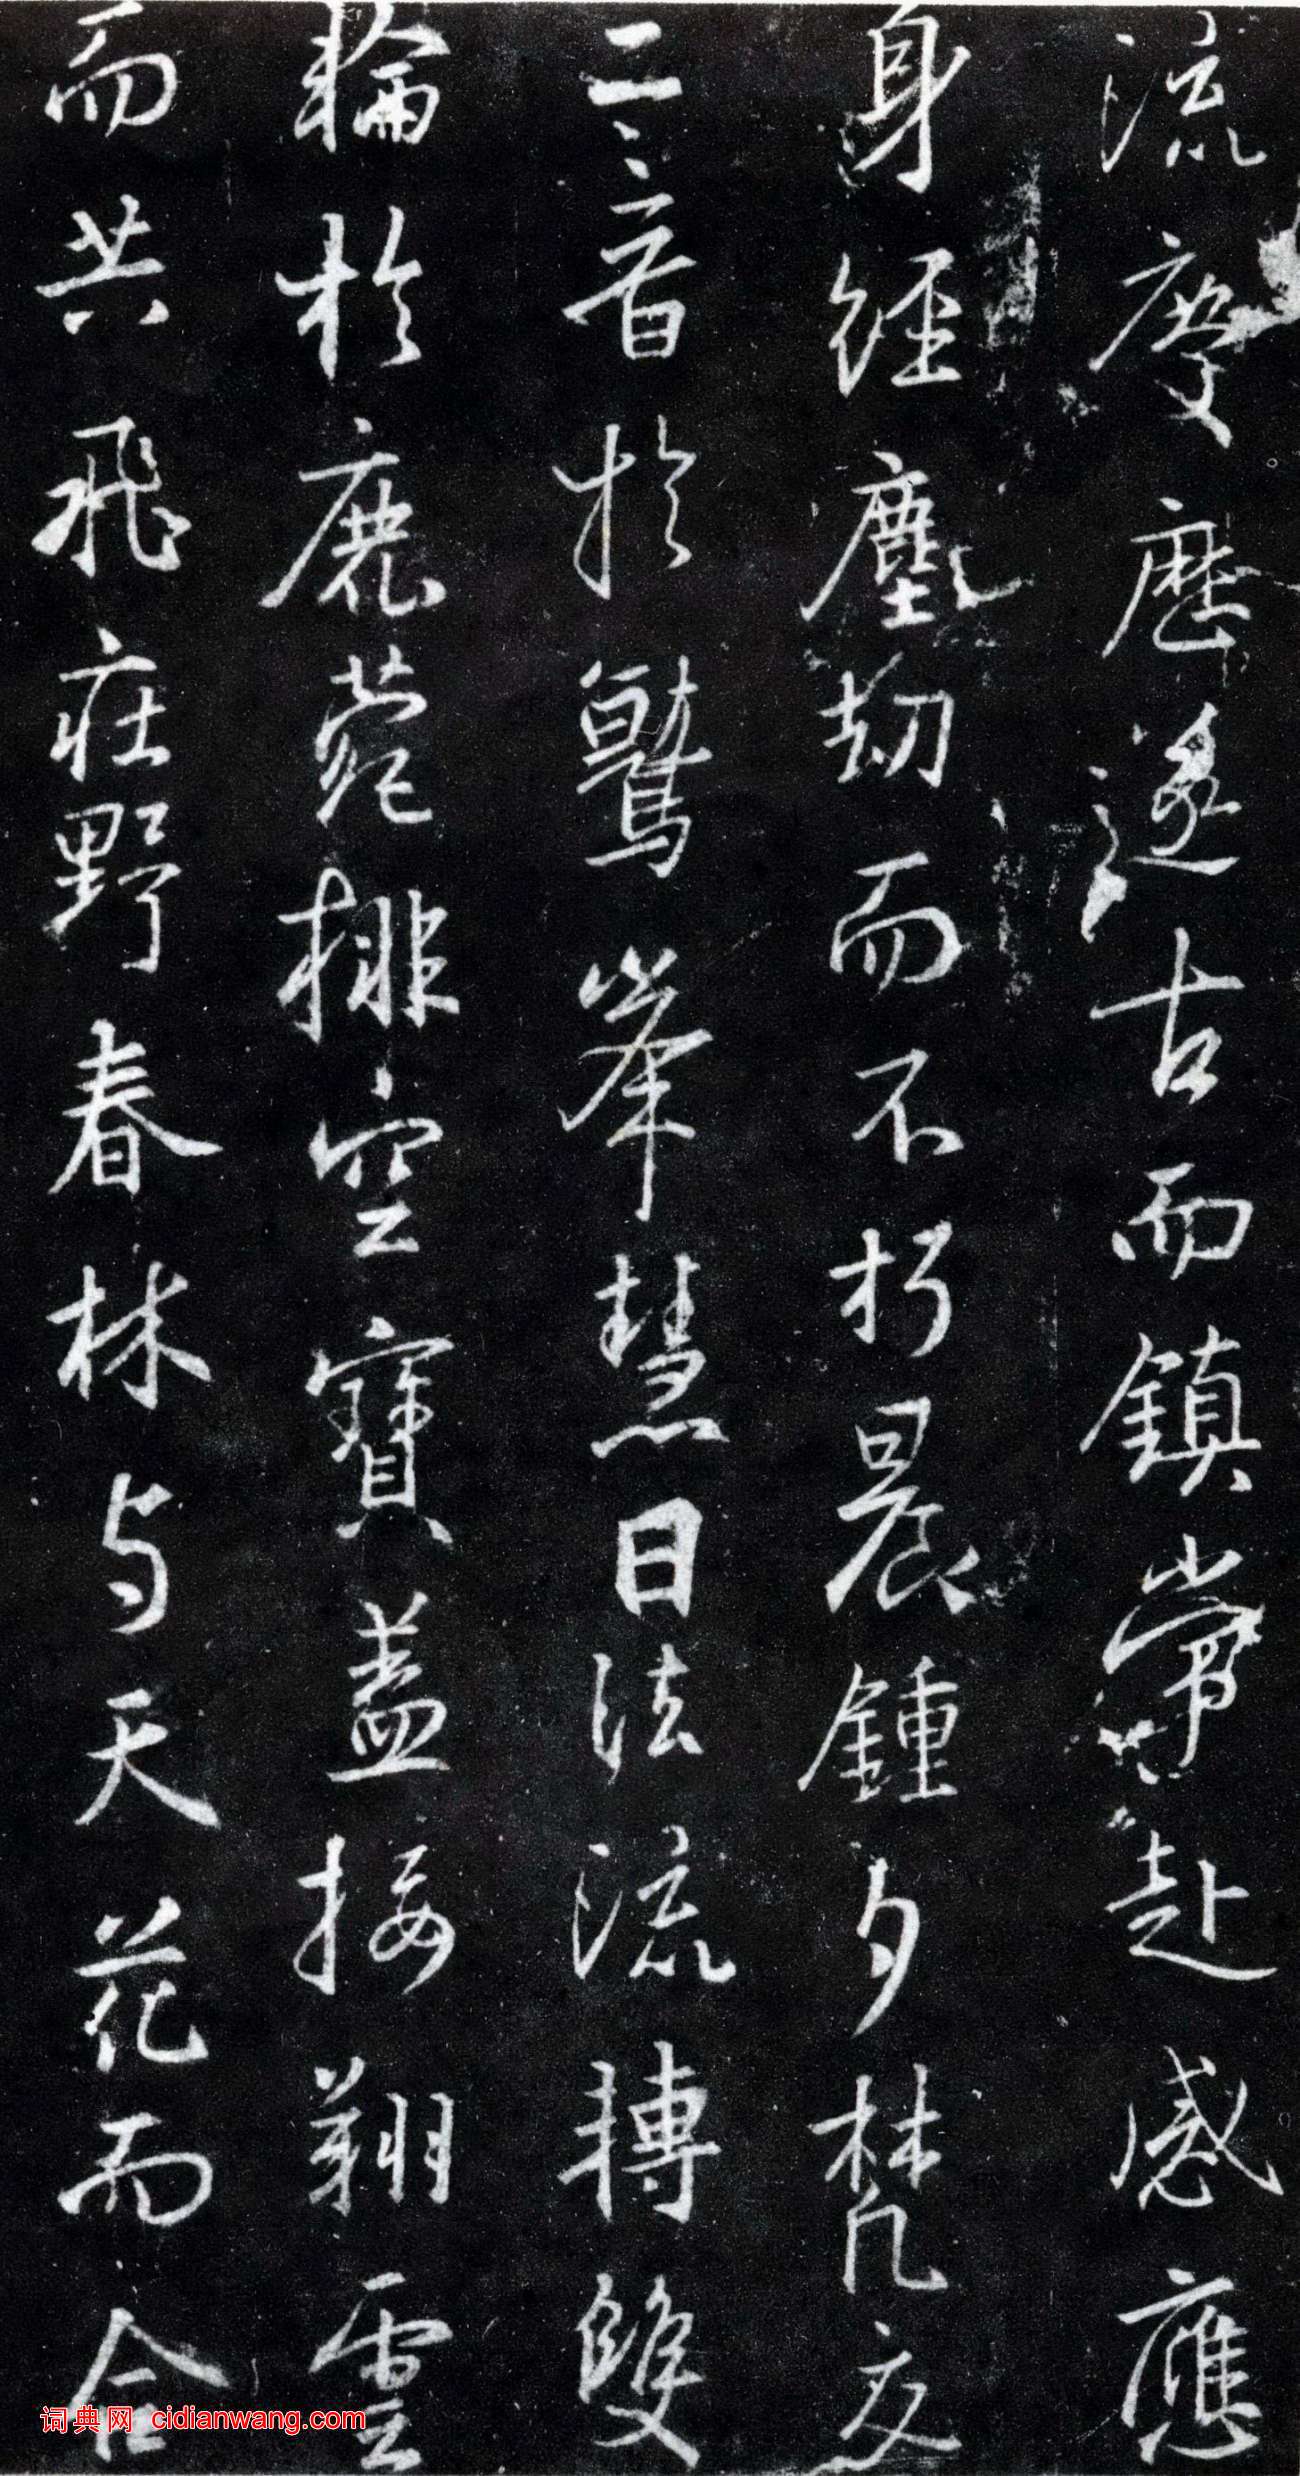 流慶歷遂古而鎮常赴感應
身經塵劫而不朽晨鍾夕梵交
二音於鷲峯慧日法流轉雙
輪於鹿菀排空寶蓋接翔雲
而共飛莊野春林与天花而合
词典网 cidianwang.com